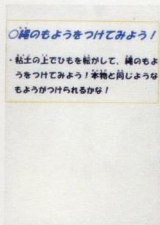 ○縄のもようをつけてみよう！
・粘土の上でひもを転がして、縄のもよ
うをつけてみよう！本物と同じような
もようがつけられるかな！